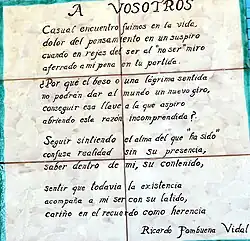 A VOSOTROS
Casual encuentro fuimos en la vida,
dolor del pensamiento en un suspiro
cuando en rejas del ser al "no ser" miro
aferrado a mi pena en tu partida.
¿Por qué el beso o una lágrima sentida
no podrán dar al mundo un nuevo giro,
conseguir esa llave a la que aspiro
abriendo esta razón incomprendida?.
Seguir sintiendo el alma del que "ha sido"
confusa realidad sin su presencia,
saber dentro de mi, su contenido,
sentir que todavía la existencia
acompaña a mi ser con su latido,
cariño en el recuerdo como herencia
Ricardo Pambuena Vidal